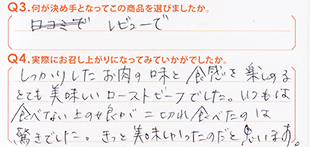 Q3.何が決め手となってこの商品を選びましたか。
口コミで レビューで
Q4.実際にお召し上がりになってみていかがでしたか。
しっかりしたお肉の味と食感を楽しめる
とても美味しいローストビーフでした。いつもは
食べない上の母が二切れ食べたのは
驚きでした。きっと美味しかったのだと思います。